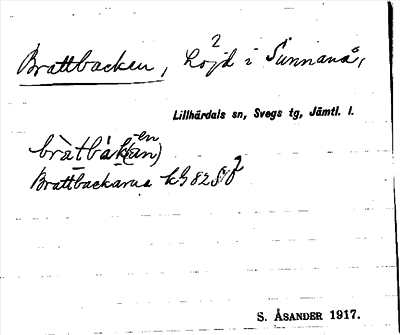 Brattbacken, höjd i Sunnanå,
Lillhärdals sn, Svegs tg, Jämtl. l.
bràtbàk(an)
-en
Brattbackarna kG 82
S. ÅSANDER 1917.